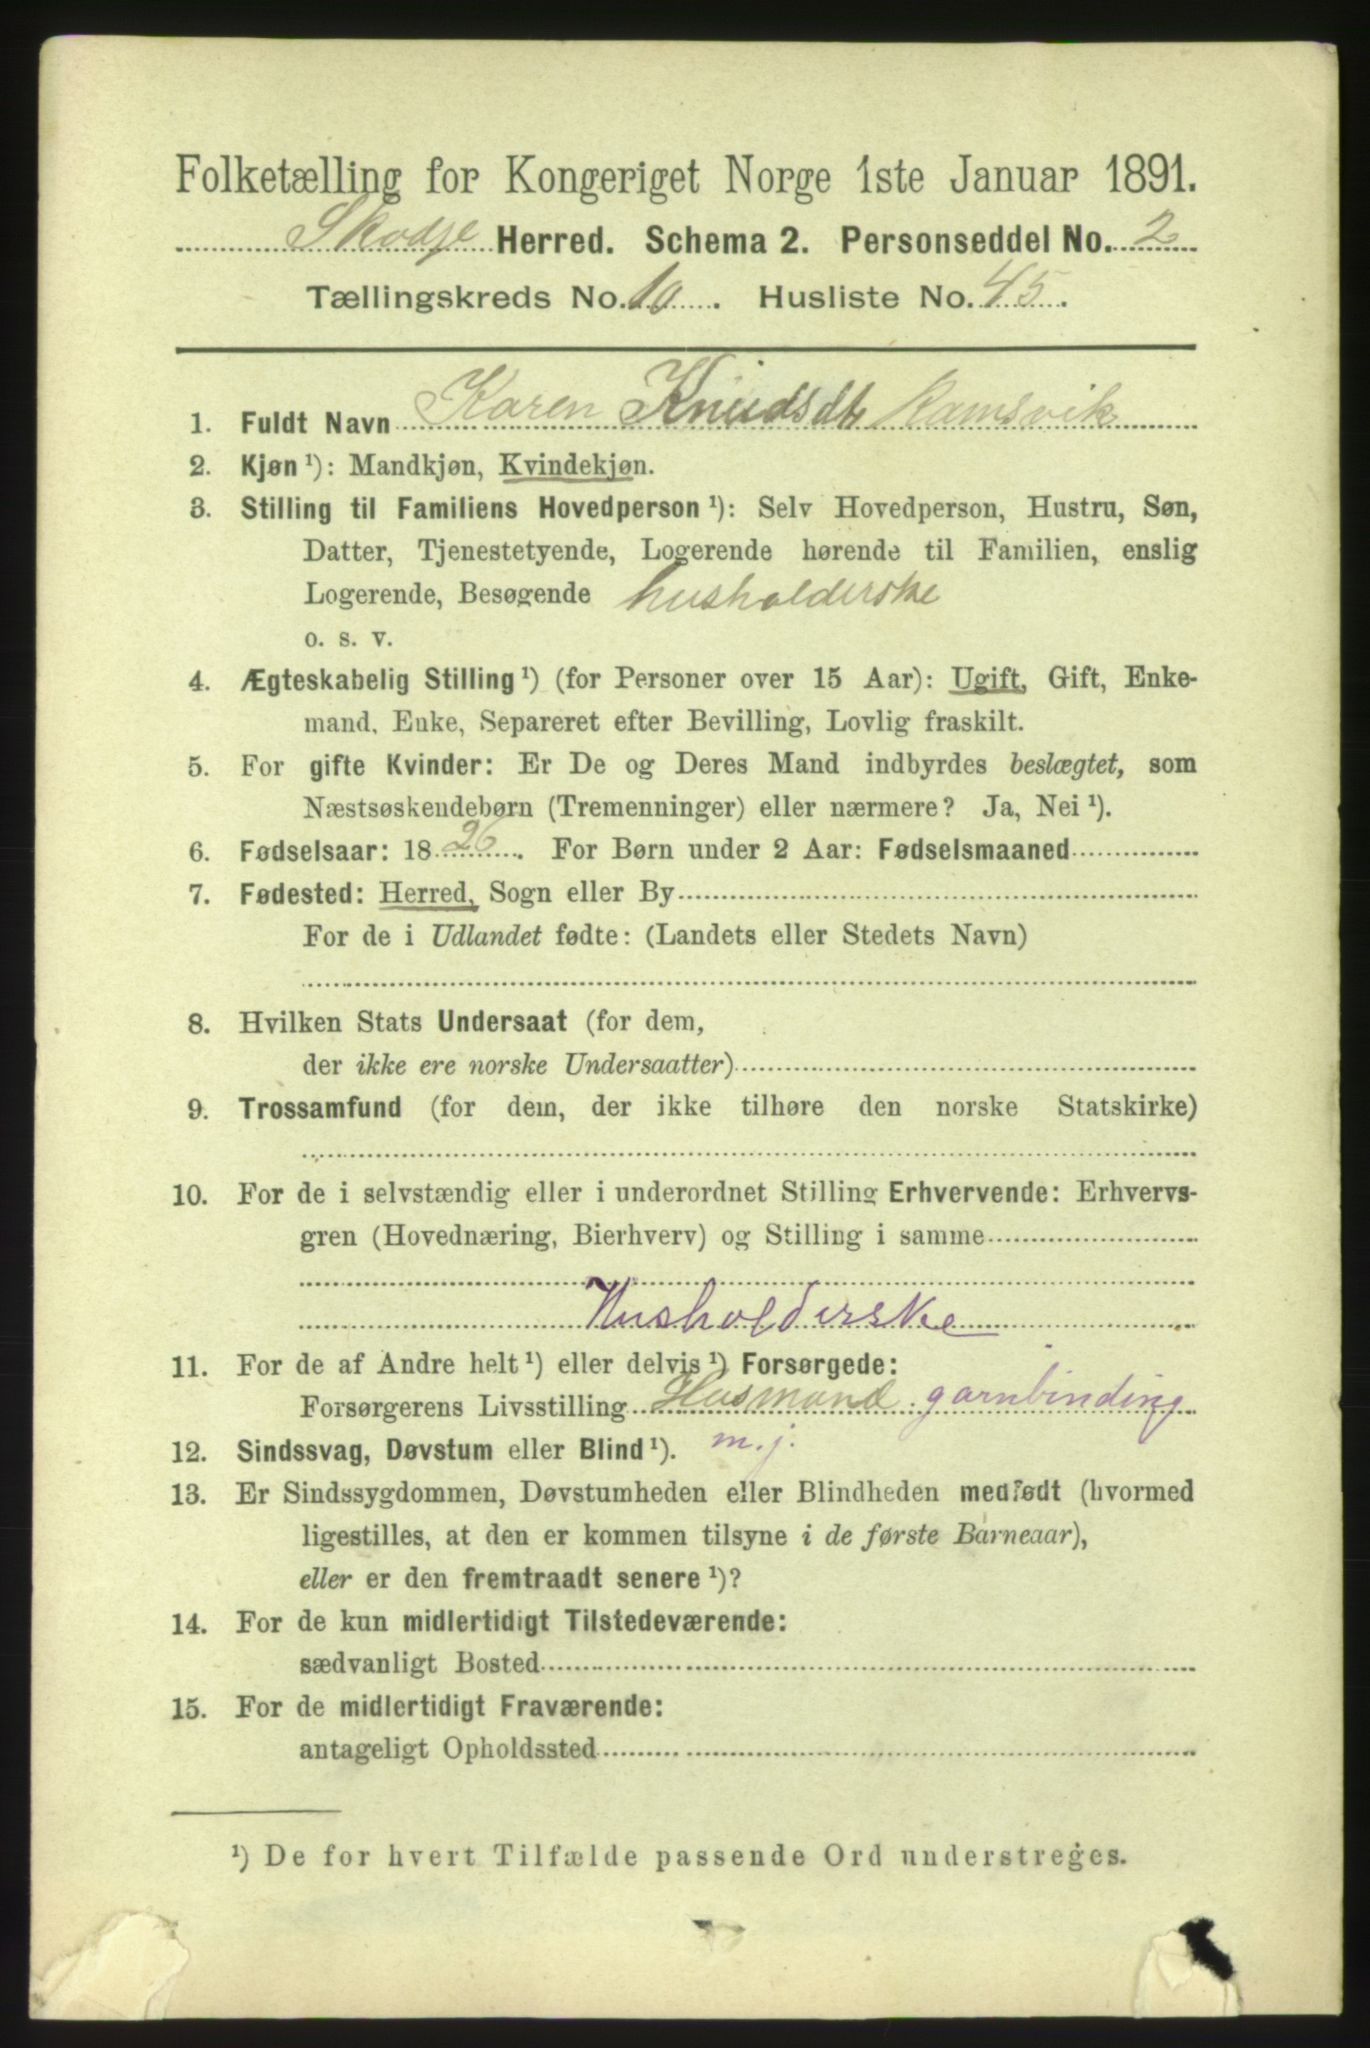 Folketælling for Kongeriget Norge 1ste Januar 1891.
Skodje Herred. Schema 2. Personseddel No. 2
Tællingskreds No. 10. Husliste No. 45.
1. Fuldt Navn Karen Knudsdtr Ramsvik
2. Kjøn ¹): Mandkjøn, Kvindekjøn.
3. Stilling til Familiens Hovedperson ¹): Selv Hovedperson, Hustru, Søn,
Datter, Tjenestetyende, Logerende hørende til Familien, enslig
Logerende, Besøgende husholderske
o. s. v.
4. Ægteskabelig Stilling ¹) (for Personer over 15 Aar): Ugift, Gift, Enke-
mand, Enke, Separeret efter Bevilling, Lovlig fraskilt.
5. For gifte Kvinder: Er De og Deres Mand indbyrdes beslægtet, som
Næstsøskendebørn (Tremenninger) eller nærmere? Ja, Nei ¹).
6. Fødselsaar: 1826. For Børn under 2 Aar: Fødselsmaaned
7. Fødested: Herred, Sogn eller By
For de i Udlandet fødte: (Landets eller Stedets Navn)
8. Hvilken Stats Undersaat (for dem,
der ikke ere norske Undersaatter)
9. Trossamfund (for dem, der ikke tilhøre den norske Statskirke)
10. For de i selvstændig eller i underordnet Stilling Erhvervende: Erhvervs-
gren (Hovednæring, Bierhverv) og Stilling i samme
Husholderske
11. For de af Andre helt ¹) eller delvis ¹) Forsørgede:
Forsørgerens Livsstilling Husmand garnbinding
12. Sindssvag, Døvstum eller Blind ¹). m. j.
13. Er Sindssygdommen, Døvstumheden eller Blindheden medfødt (hvormed
ligestilles, at den er kommen tilsyne i de første Barneaar),
eller er den fremtraadt senere ¹)?
14. For de kun midlertidigt Tilstedeværende:
sædvanligt Bosted
15. For de midlertidigt Fraværende:
antageligt Opholdssted
¹) De for hvert Tilfælde passende Ord understreges.